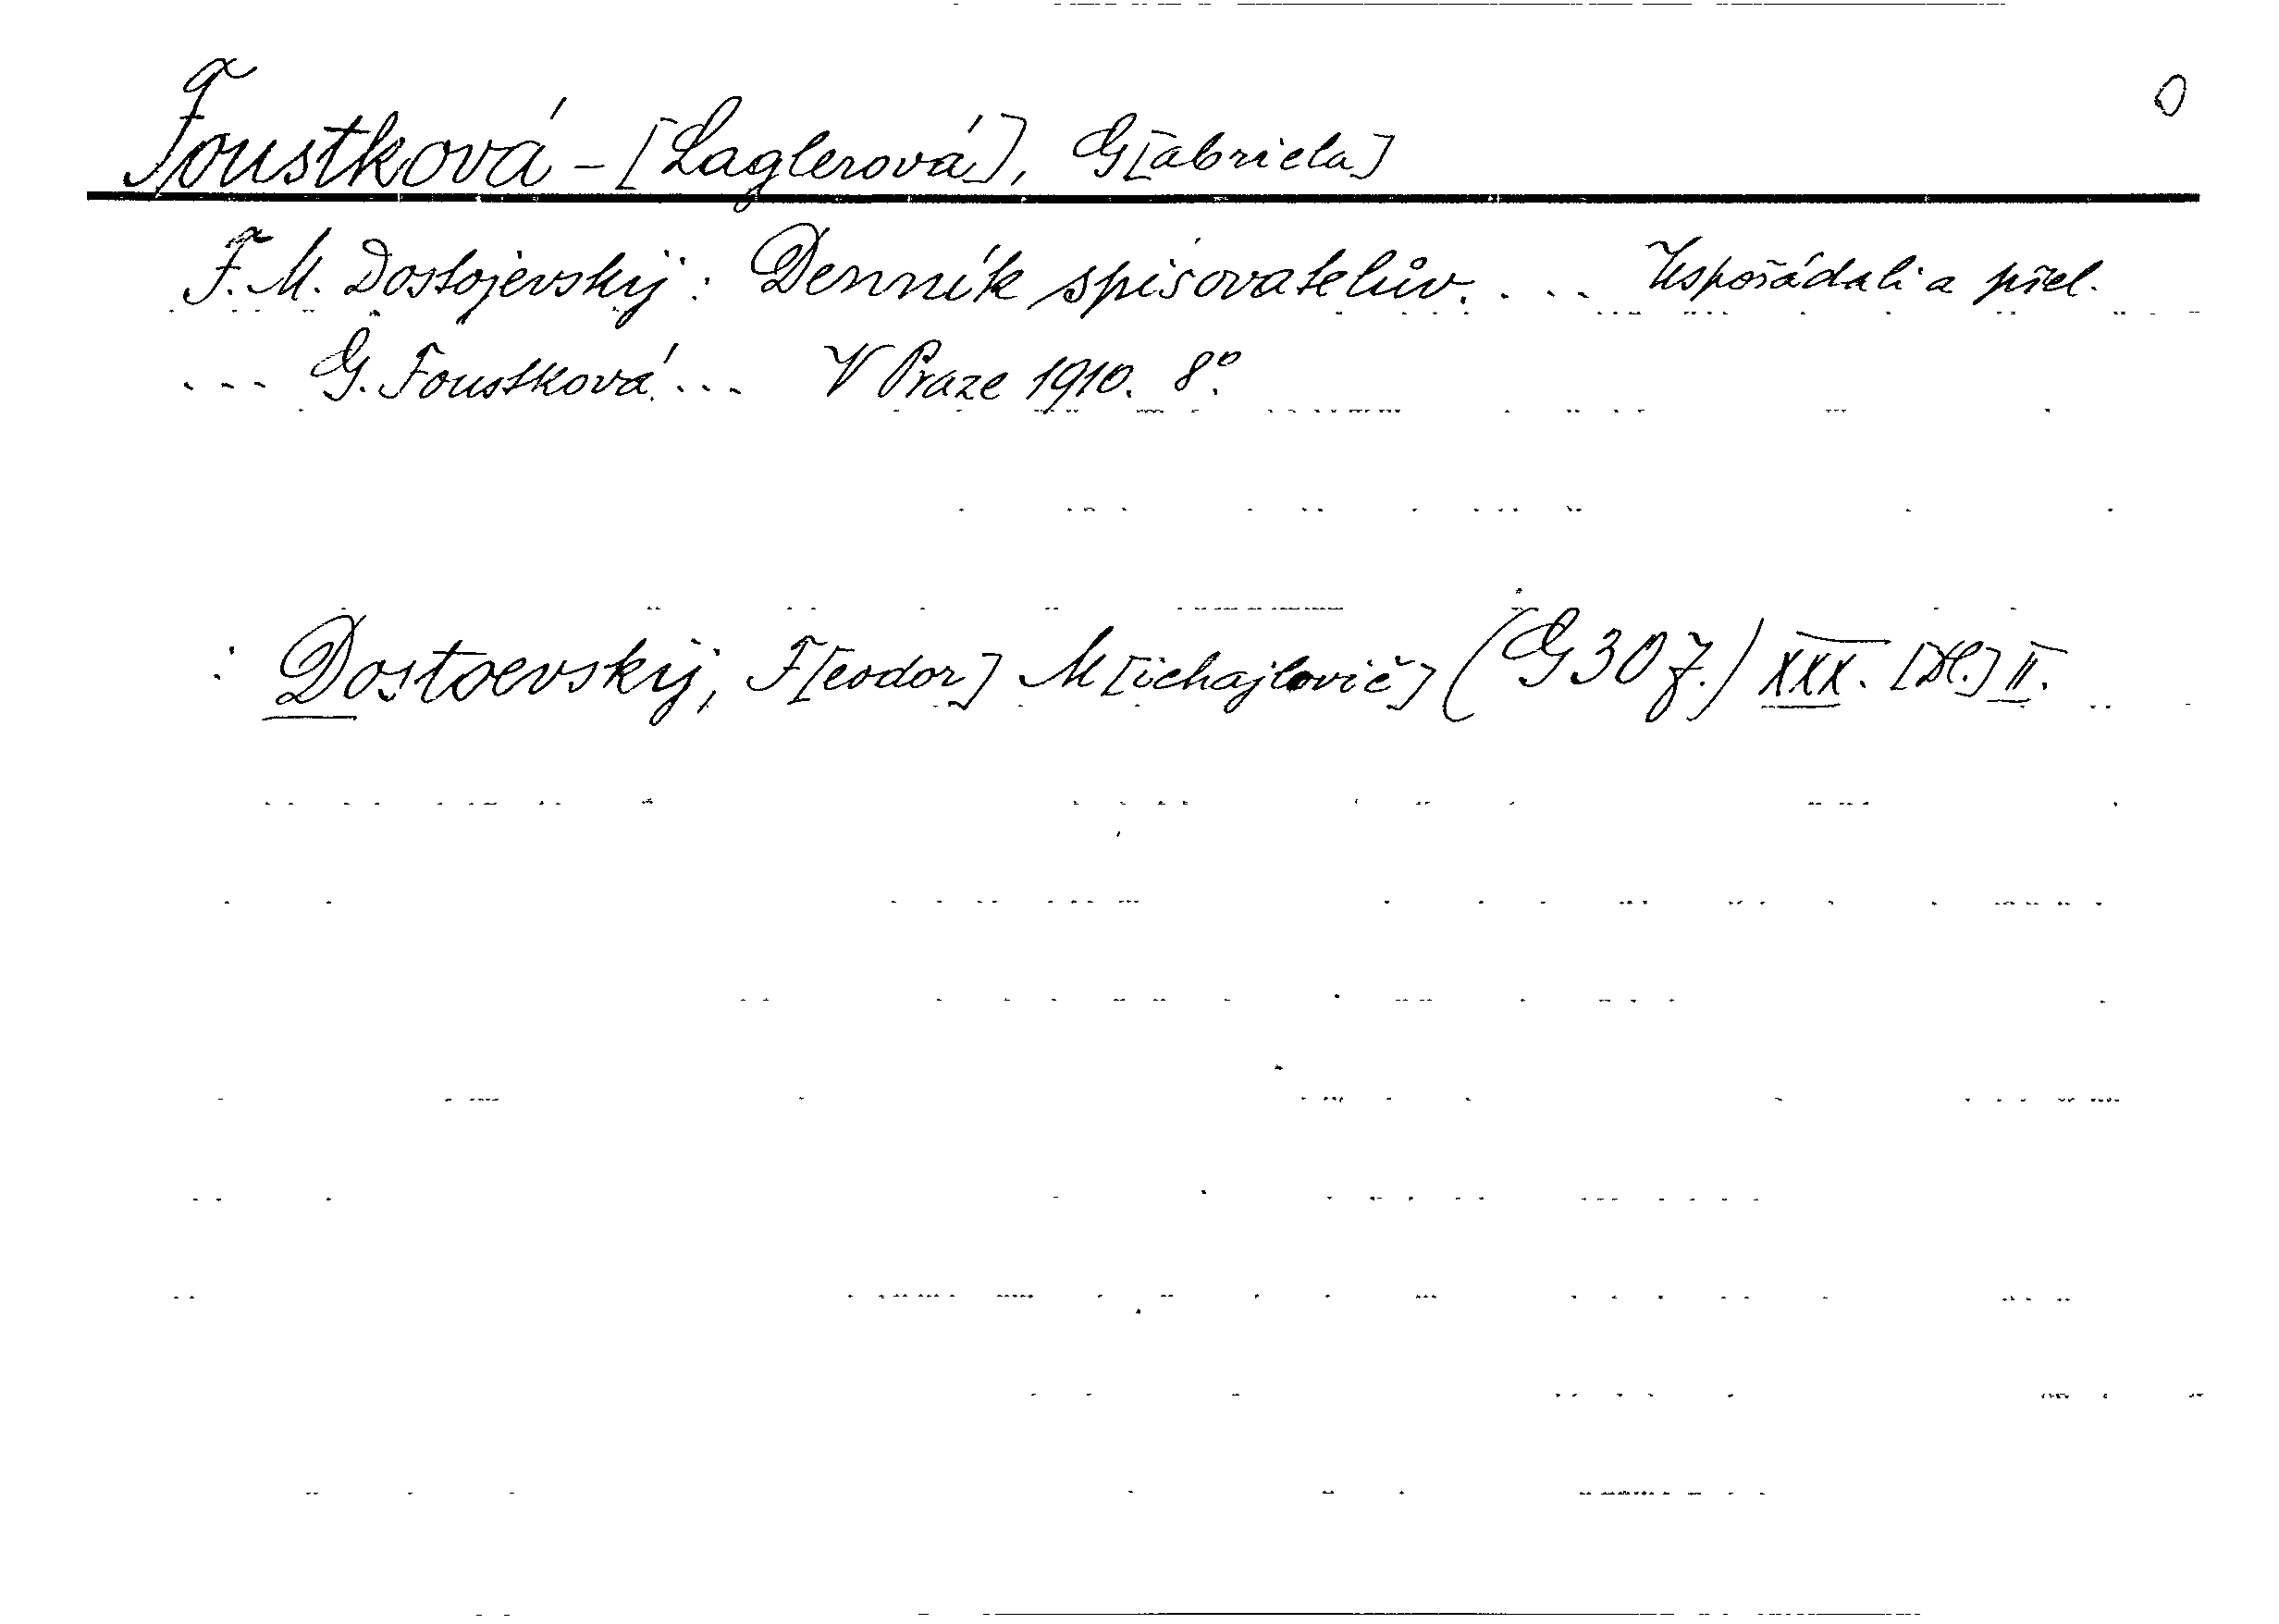 O
Foustková - [Laglerová], G[abriela]
F. M. Dostojevskij: Denník spisovatelův. ... Uspořádali a přel.
... G. Foustková ... V Praze 1910. 8°.
: Dostoevskij, F[eodor] M[ichajlovič] (G 307.) XXX. [Dl.] II.